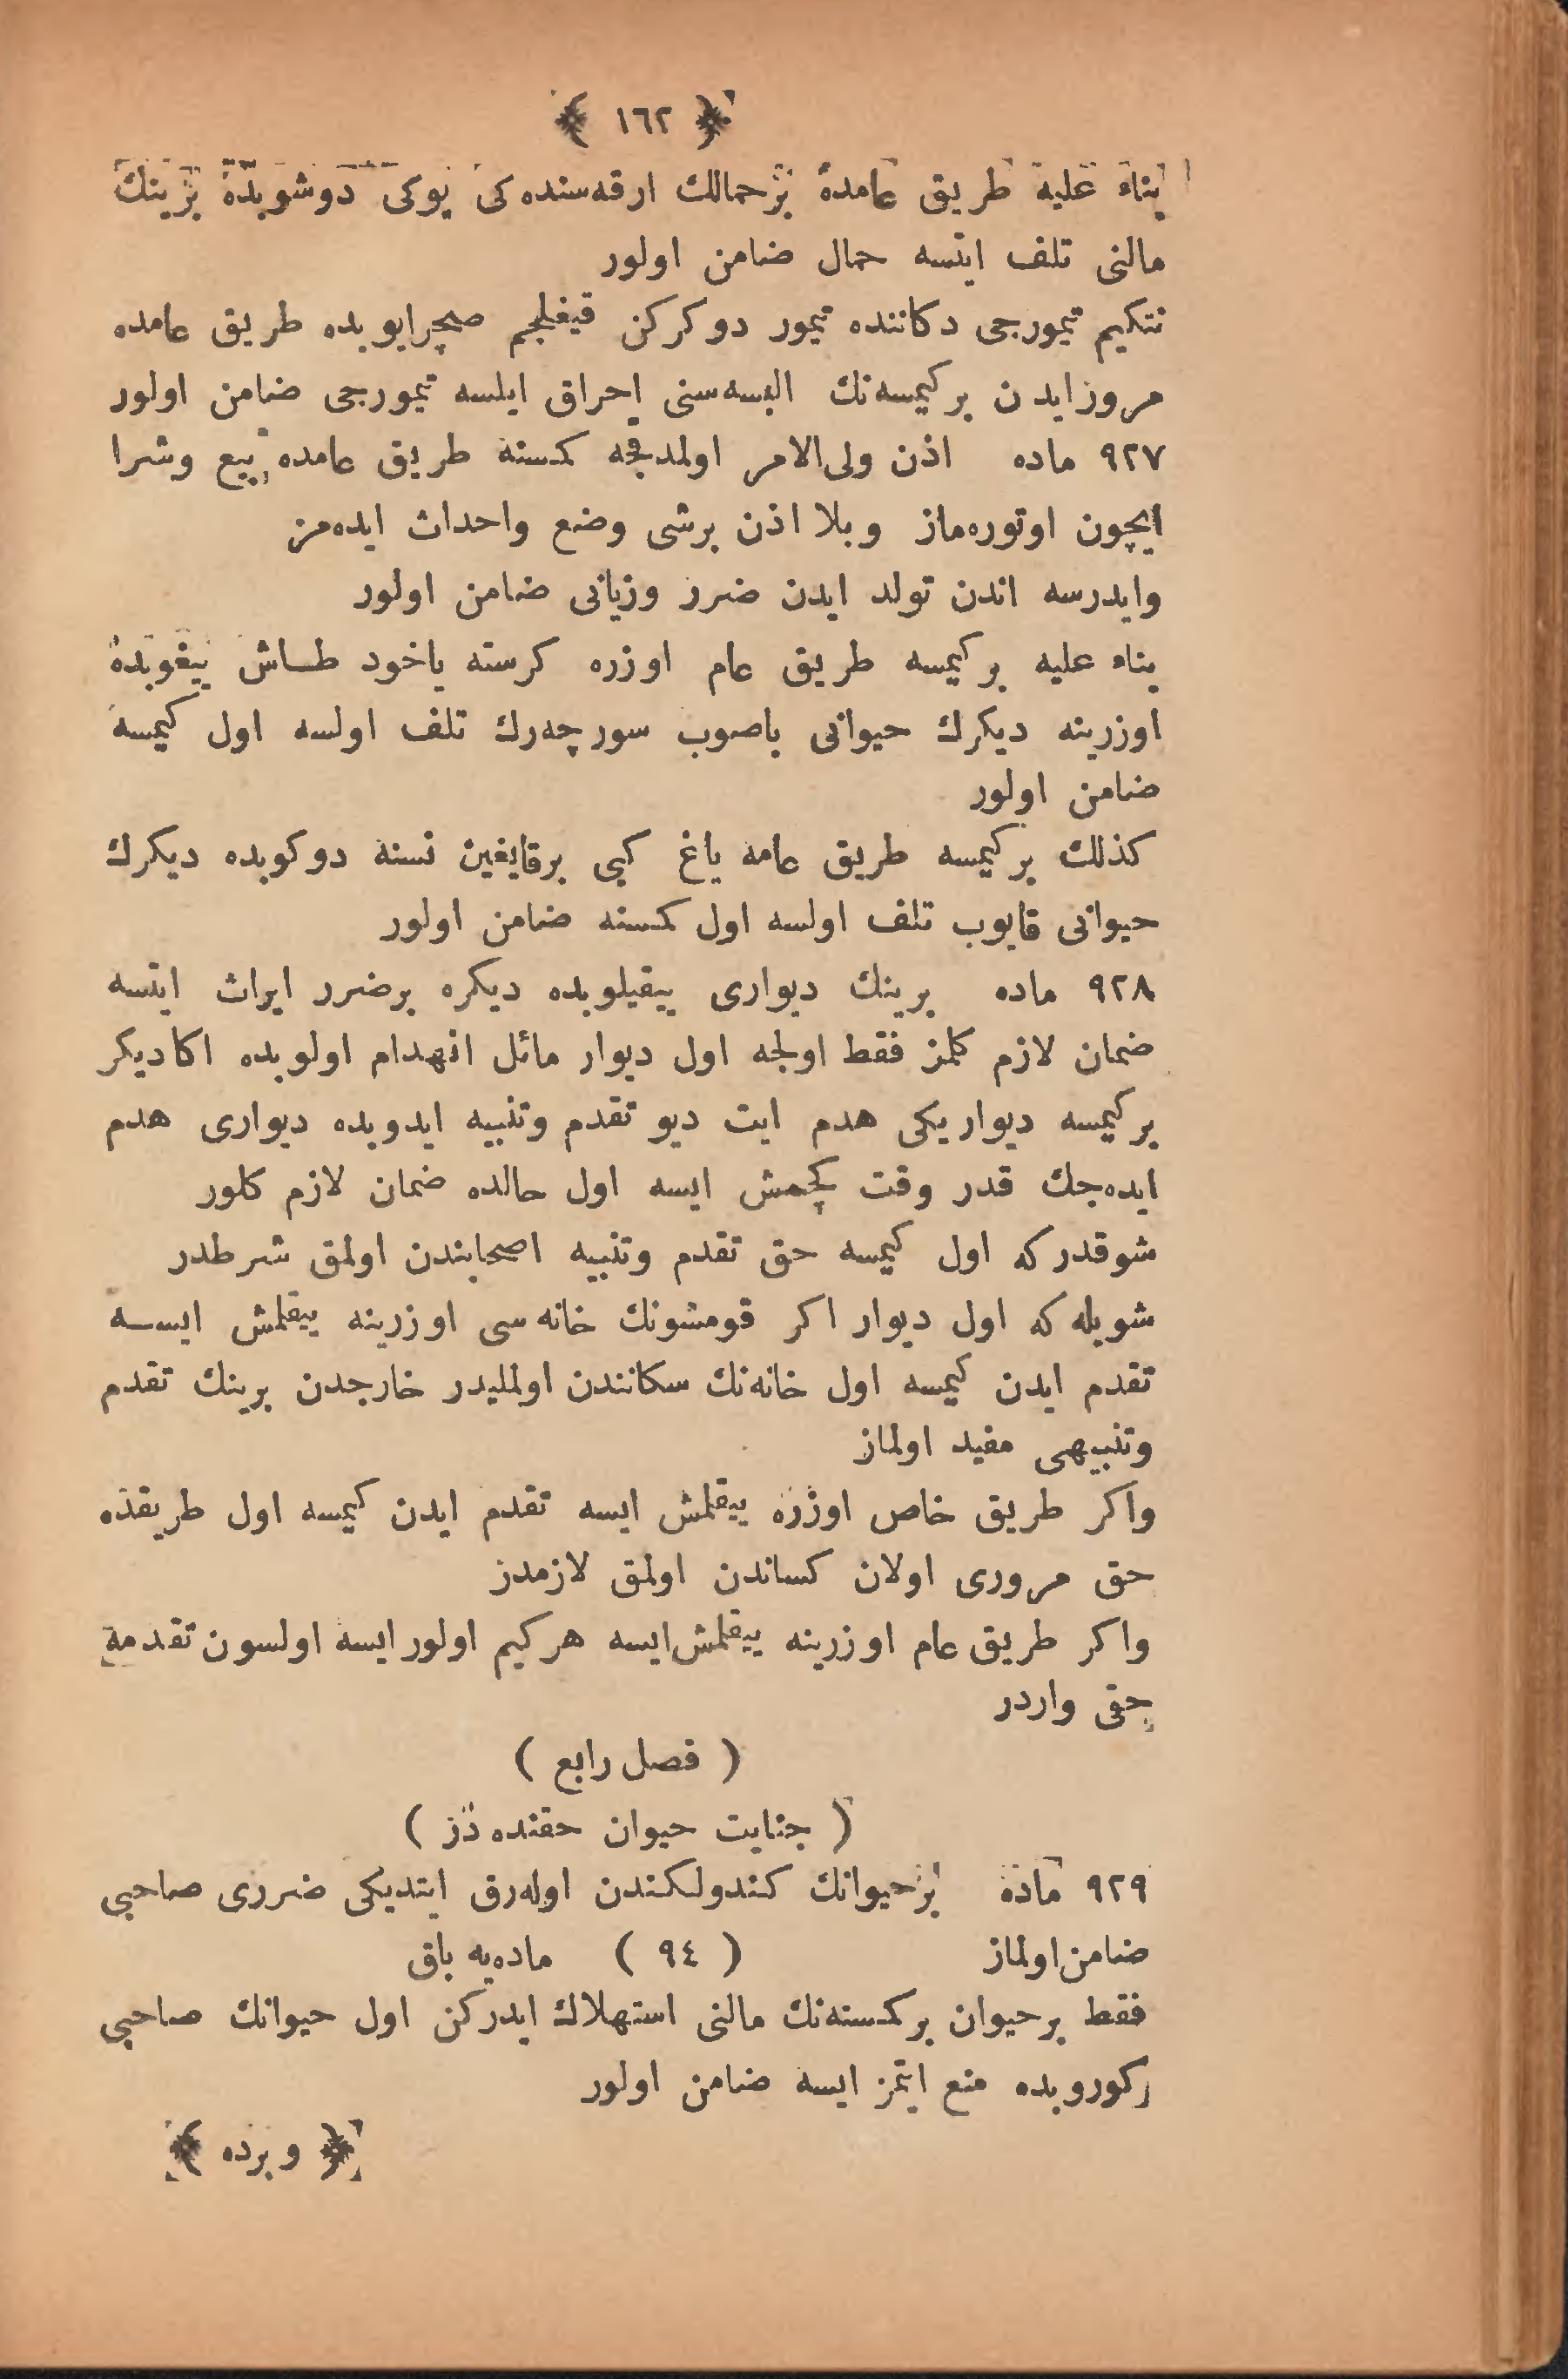 ﴿ ١٦٢ ﴾
بناء عليه طريق عامده برحمالك ارقه‌سنده‌كى يوكى دوشوبده برينك
مالنى تلف ايتسه حمال ضامن اولور
نتكيم تيمورجى دكاننده تيمور دوكركن قيغلجم صچرايوبده طريق عامده
مرورايدن بركيمسه‌نك البسه‌سنى احراق ايلسه تيمورجى ضامن اولور
٩٢٧ ماده اذن ولى‌الامر اولمدقجه كمسنه طريق عامده بيع وشرا
ايچون اوتوره‌ماز وبلا اذن برشى وضع واحداث ايده‌مز
وايدرسه اندن تولد ايدن ضرر وزيانى ضامن اولور
بناء عليه بركيمسه طريق عام اوزره كرسته ياخود طاش ييغوبده
اوزرينه ديكرك حيوانى باصوب سورچه‌رك تلف اولسه اول كيمسه
ضامن اولور
كذلك بركيمسه طريق عامه ياغ كبى برقايغين نسنه دوكوبده ديكرك
حيوانى قايوب تلف اولسه اول كمسنه ضامن اولور
٩٢٨ ماده برينك ديوارى ييقيلوبده ديكره برضرر ايراث ايتسه
ضمان لازم كلمز فقط اولجه اول ديوار مائل انهدام اولوبده اكاديكر
بركيمسه ديواريكى هدم ايت ديو تقدم وتنبيه ايدوبده ديوارى هدم
ايده‌جك قدر وقت كچمش ايسه اول حالده ضمان لازم كلور
شوقدركه اول كيمسه حق تقدم وتنبيه اصحابندن اولمق شرطدر
شويله‌كه اول ديوار اكر قومشونك خانه‌سى اوزرينه ييقلمش ايسه
تقدم ايدن كيمسه اول خانه‌نك سكانندن اولمليدر خارجدن برينك تقدم
وتنبيهى مفيد اولماز
واكر طريق خاص اوزره ييقلمش ايسه تقدم ايدن كيمسه اول طريقده
حق مرورى اولان كساندن اولمق لازمدر
واكر طريق عام اوزرينه ييقلمش‌ايسه هركيم اولورايسه اولسون تقدمه
حقى واردر
( فصل رابع )
( جنايت حيوان حقنده در )
٩٢٩ ماده برحيوانك كندولكندن اوله‌رق ايتديكى ضررى صاحبى
ضامن‌اولماز ( ٩٤ ) ماده‌يه باق
فقط برحيوان بركمسنه‌نك مالنى استهلاك ايدركن اول حيوانك صاحبى
كوروبده منع ايتمز ايسه ضامن اولور
﴿ وبرده ﴾